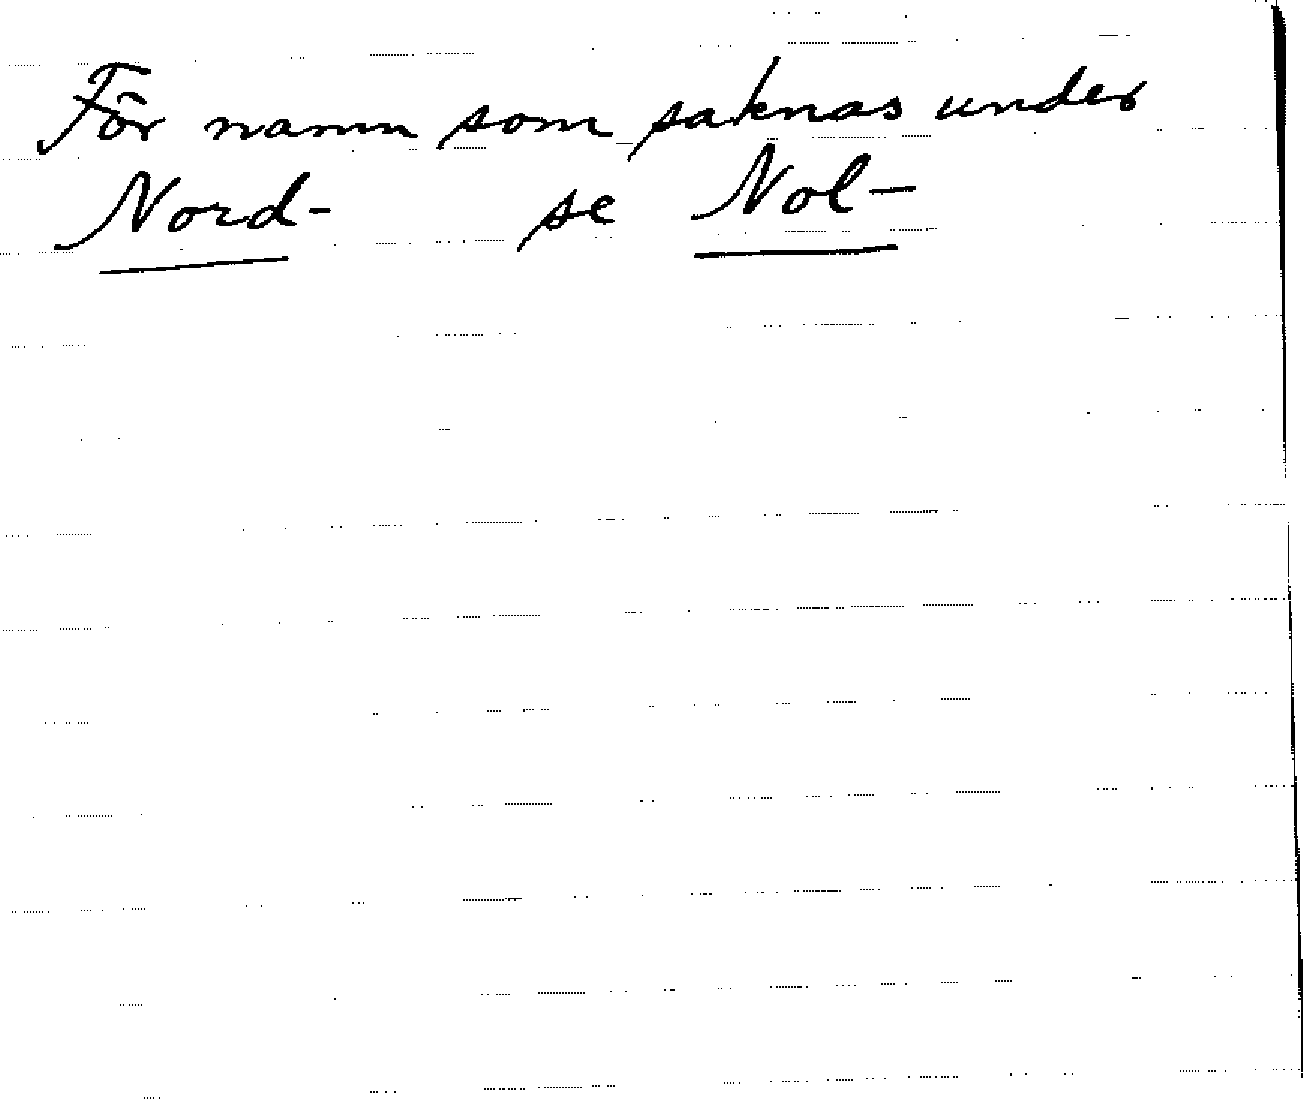 För namn som saknas under
Nord- se Nol-